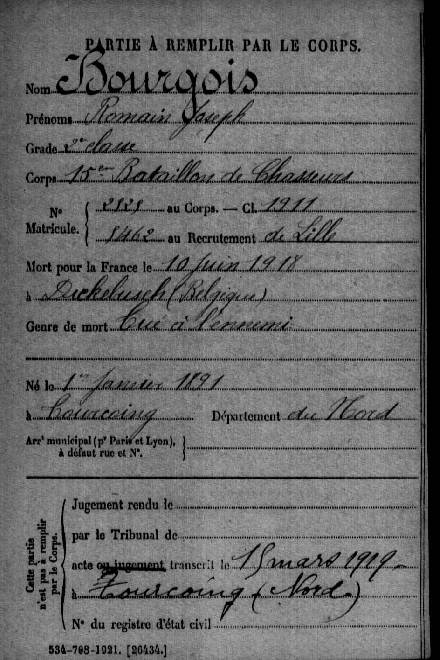 PARTIE À REMPLIR PAR LE CORPS.
Nom Bourgois
Prénoms Romain Joseph
Grade 2e classe
Corps 15em Bataillon de Chasseurs
No Matricule. { 2828 au Corps. — Cl. 1911
8462 au Recrutement de Lille
Mort pour la France le 10 juin 1918
à Dickebusch (Belgique)
Genre de mort Tué à l'ennemi
Né le 1er Janvier 1891
à Tourcoing Département du Nord
Arrt municipal (pr Paris et Lyon),
à défaut rue et No.
Cette partie n'est pas à remplir par le Corps.
Jugement rendu le
par le Tribunal de
acte ou jugement transcrit le 15 mars 1919
à Tourcoing (Nord)
No du registre d'état civil
534-708-1921. [26434.]